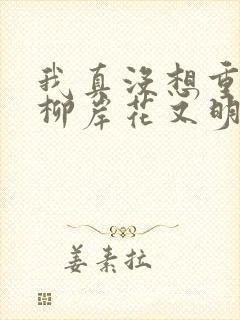 我真没想重
柳岸花又明
姜素拉